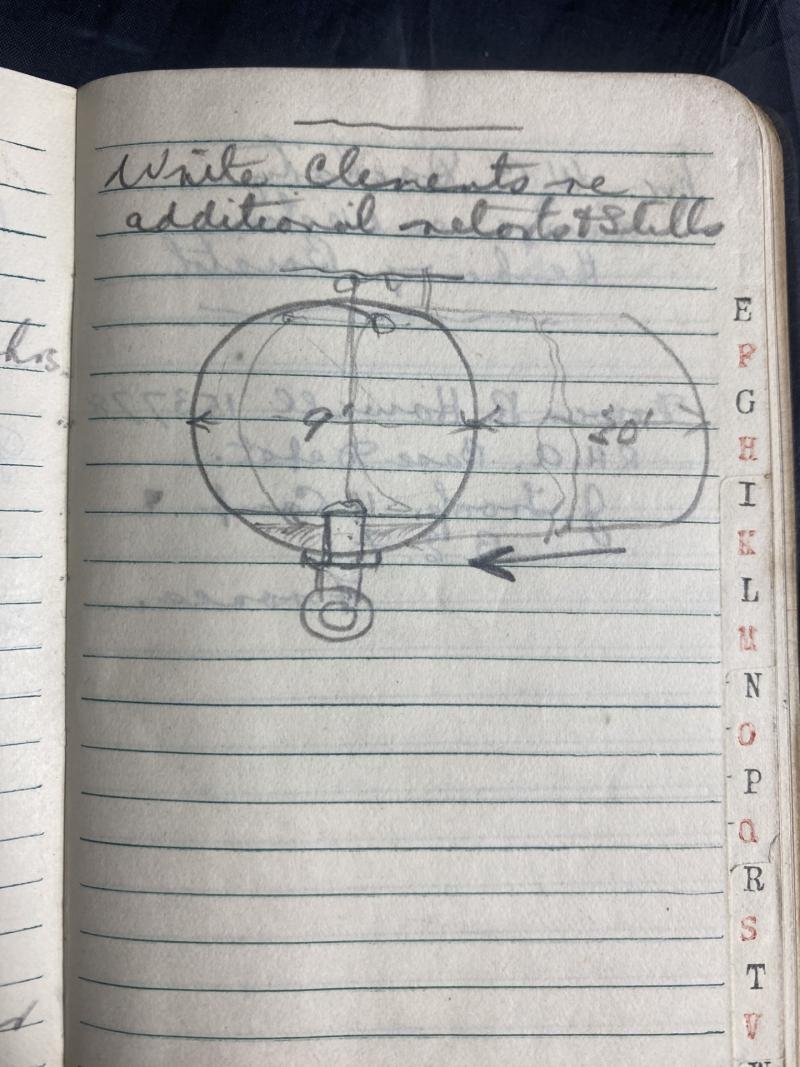 Write Clements re
additional retorts & Stills
9'
30'
hrs.
E
F
G
H
I
K
L
M
N
O
P
Q
R
S
T
V